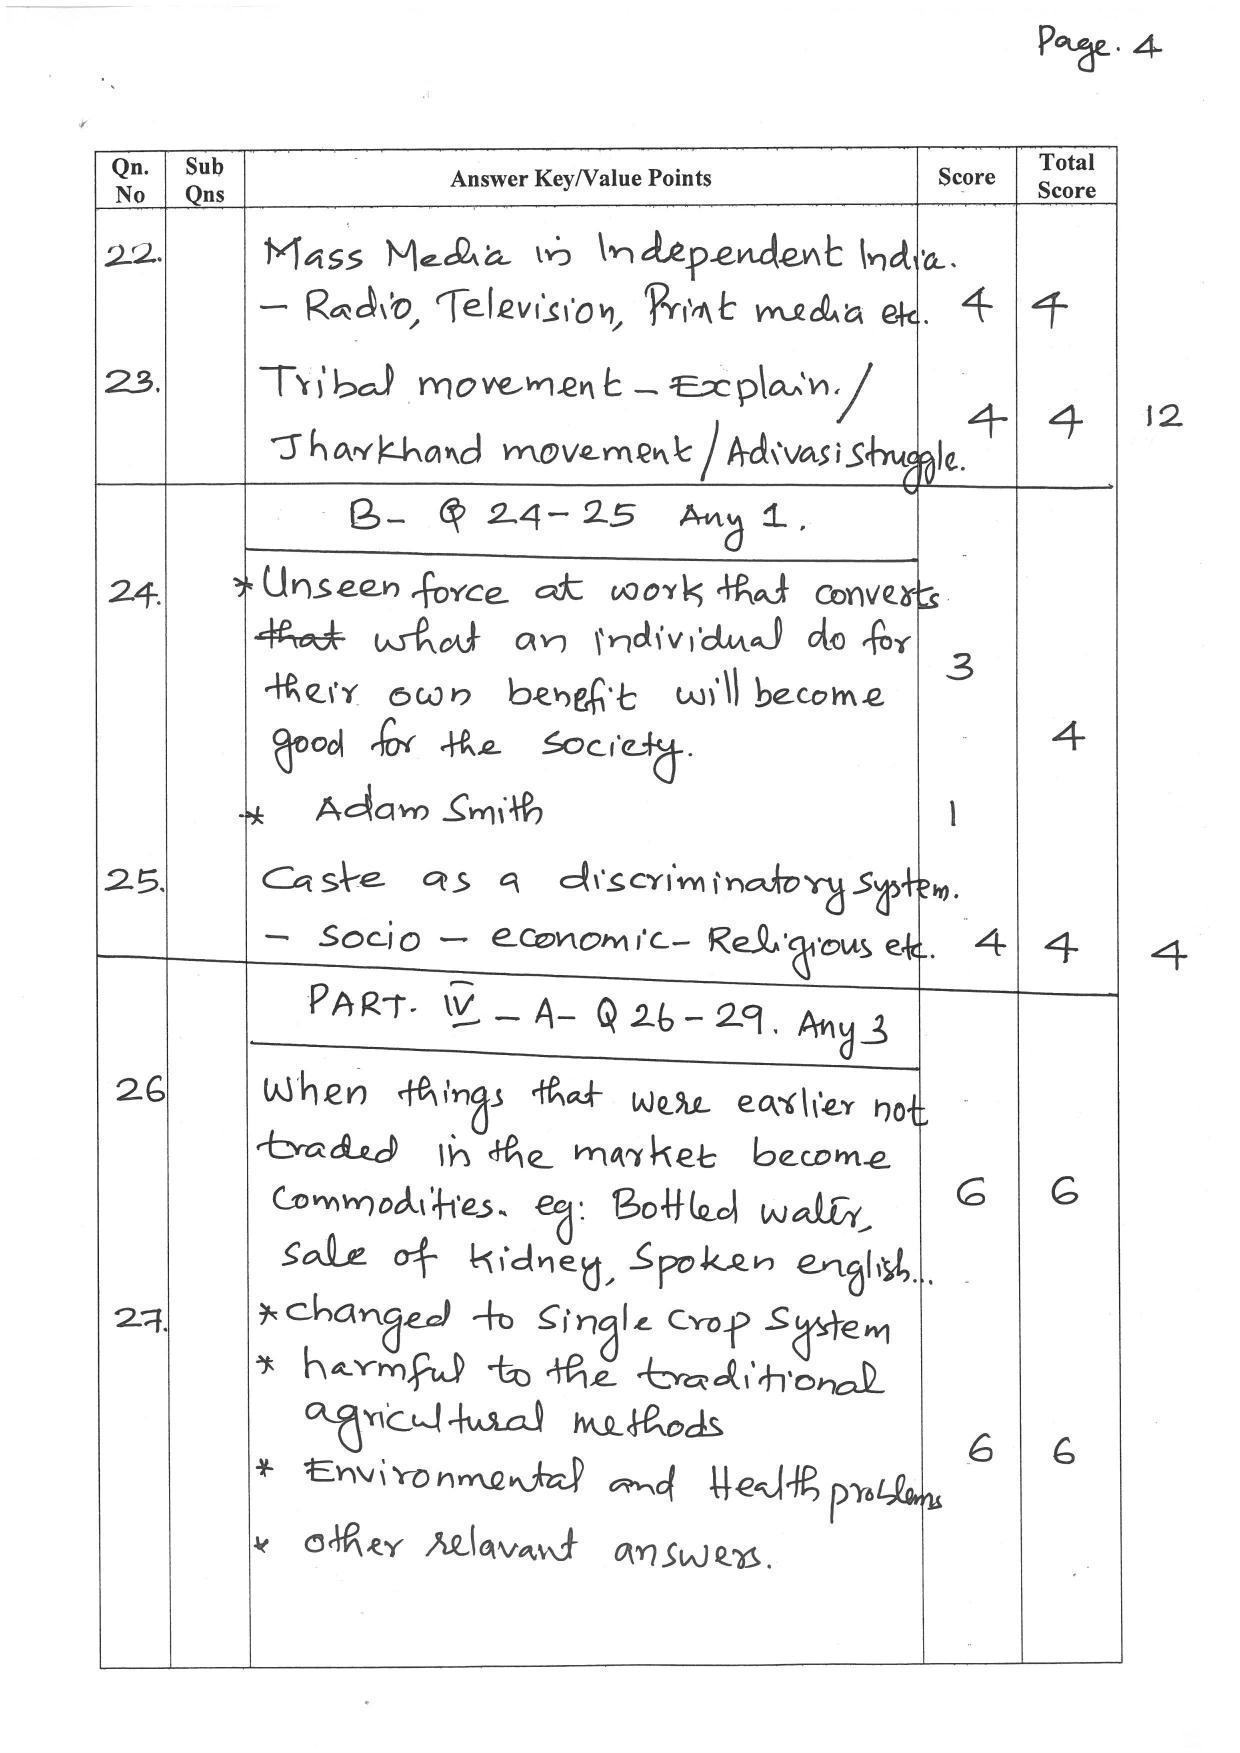 Page. 4
Qn. No Sub Qns Answer Key/Value Points Score Total Score
22. Mass Media in Independent India.
- Radio, Television, Print media etc. 4 4
23. Tribal movement - Explain. /
4 4 12
Jharkhand movement / Adivasi struggle.
B- Q 24-25 Any 1.
24. * Unseen force at work that converts
that what an individual do for
3
their own benefit will become
good for the society. 4
* Adam Smith 1
25. Caste as a discriminatory system.
- Socio - economic - Religious etc. 4 4 4
PART. IV - A- Q 26-29. Any 3
26 When things that were earlier not
traded in the market become
Commodities. eg: Bottled water, 6 6
sale of kidney, Spoken english...
27. * Changed to Single Crop System
* harmful to the traditional
agricultural methods
6 6
* Environmental and Health problems
* other relavant answers.